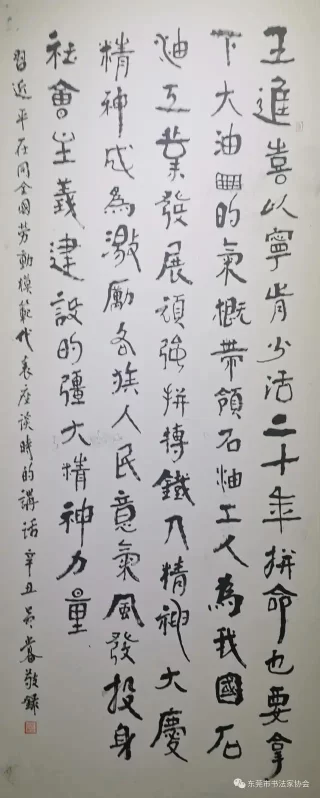 王進喜以寧肯少活二十年拼命也要拿
下大油田的氣概帶領石油工人為我國石
油工業發展頑強拼搏鐵人精神大慶
精神成為激勵各族人民意氣風發投身
社會主義建設的強大精神力量
習近平在同全國勞動模範代表座談時的講話辛丑吳 敬錄
东莞市书法家协会